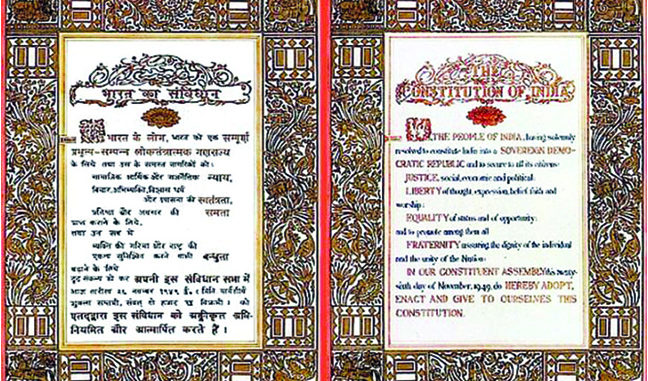 भारत का संविधान
हम भारत के लोग, भारत को एक सम्पूर्ण
प्रभुत्व-सम्पन्न लोकतंत्रात्मक गणराज्य
के लिये तथा उस के समस्त नागरिकों को:
सामाजिक आर्थिक और राजनैतिक न्याय,
विचार, अभिव्यक्ति, विश्वास धर्म
और उपासना की स्वतंत्रता,
प्रतिष्ठा और अवसर की समता
प्राप्त कराने के लिये,
तथा उन सब में
व्यक्ति की गरिमा और राष्ट्र की
एकता सुनिश्चित करने वाली बन्धुता
बढ़ाने के लिये
दृढ़ संकल्प हो कर अपनी इस संविधान सभा में
आज तारीख २६ नवम्बर १९४९ ई० (मिति मार्गशीर्ष
शुक्ला सप्तमी, संवत् दो हजार छै विक्रमी) को
एतद्द्वारा इस संविधान को अङ्गीकृत अधि-
नियमित और आत्मार्पित करते हैं।
THE
CONSTITUTION OF INDIA
WE, THE PEOPLE OF INDIA, having solemnly
resolved to constitute India into a SOVEREIGN DEMO-
CRATIC REPUBLIC and to secure to all its citizens:
JUSTICE, social, economic and political;
LIBERTY of thought, expression, belief, faith and
worship;
EQUALITY of status and of opportunity;
and to promote among them all
FRATERNITY assuring the dignity of the individual
and the unity of the Nation;
IN OUR CONSTITUENT ASSEMBLY this twenty-
sixth day of November, 1949, do HEREBY ADOPT,
ENACT AND GIVE TO OURSELVES THIS
CONSTITUTION.